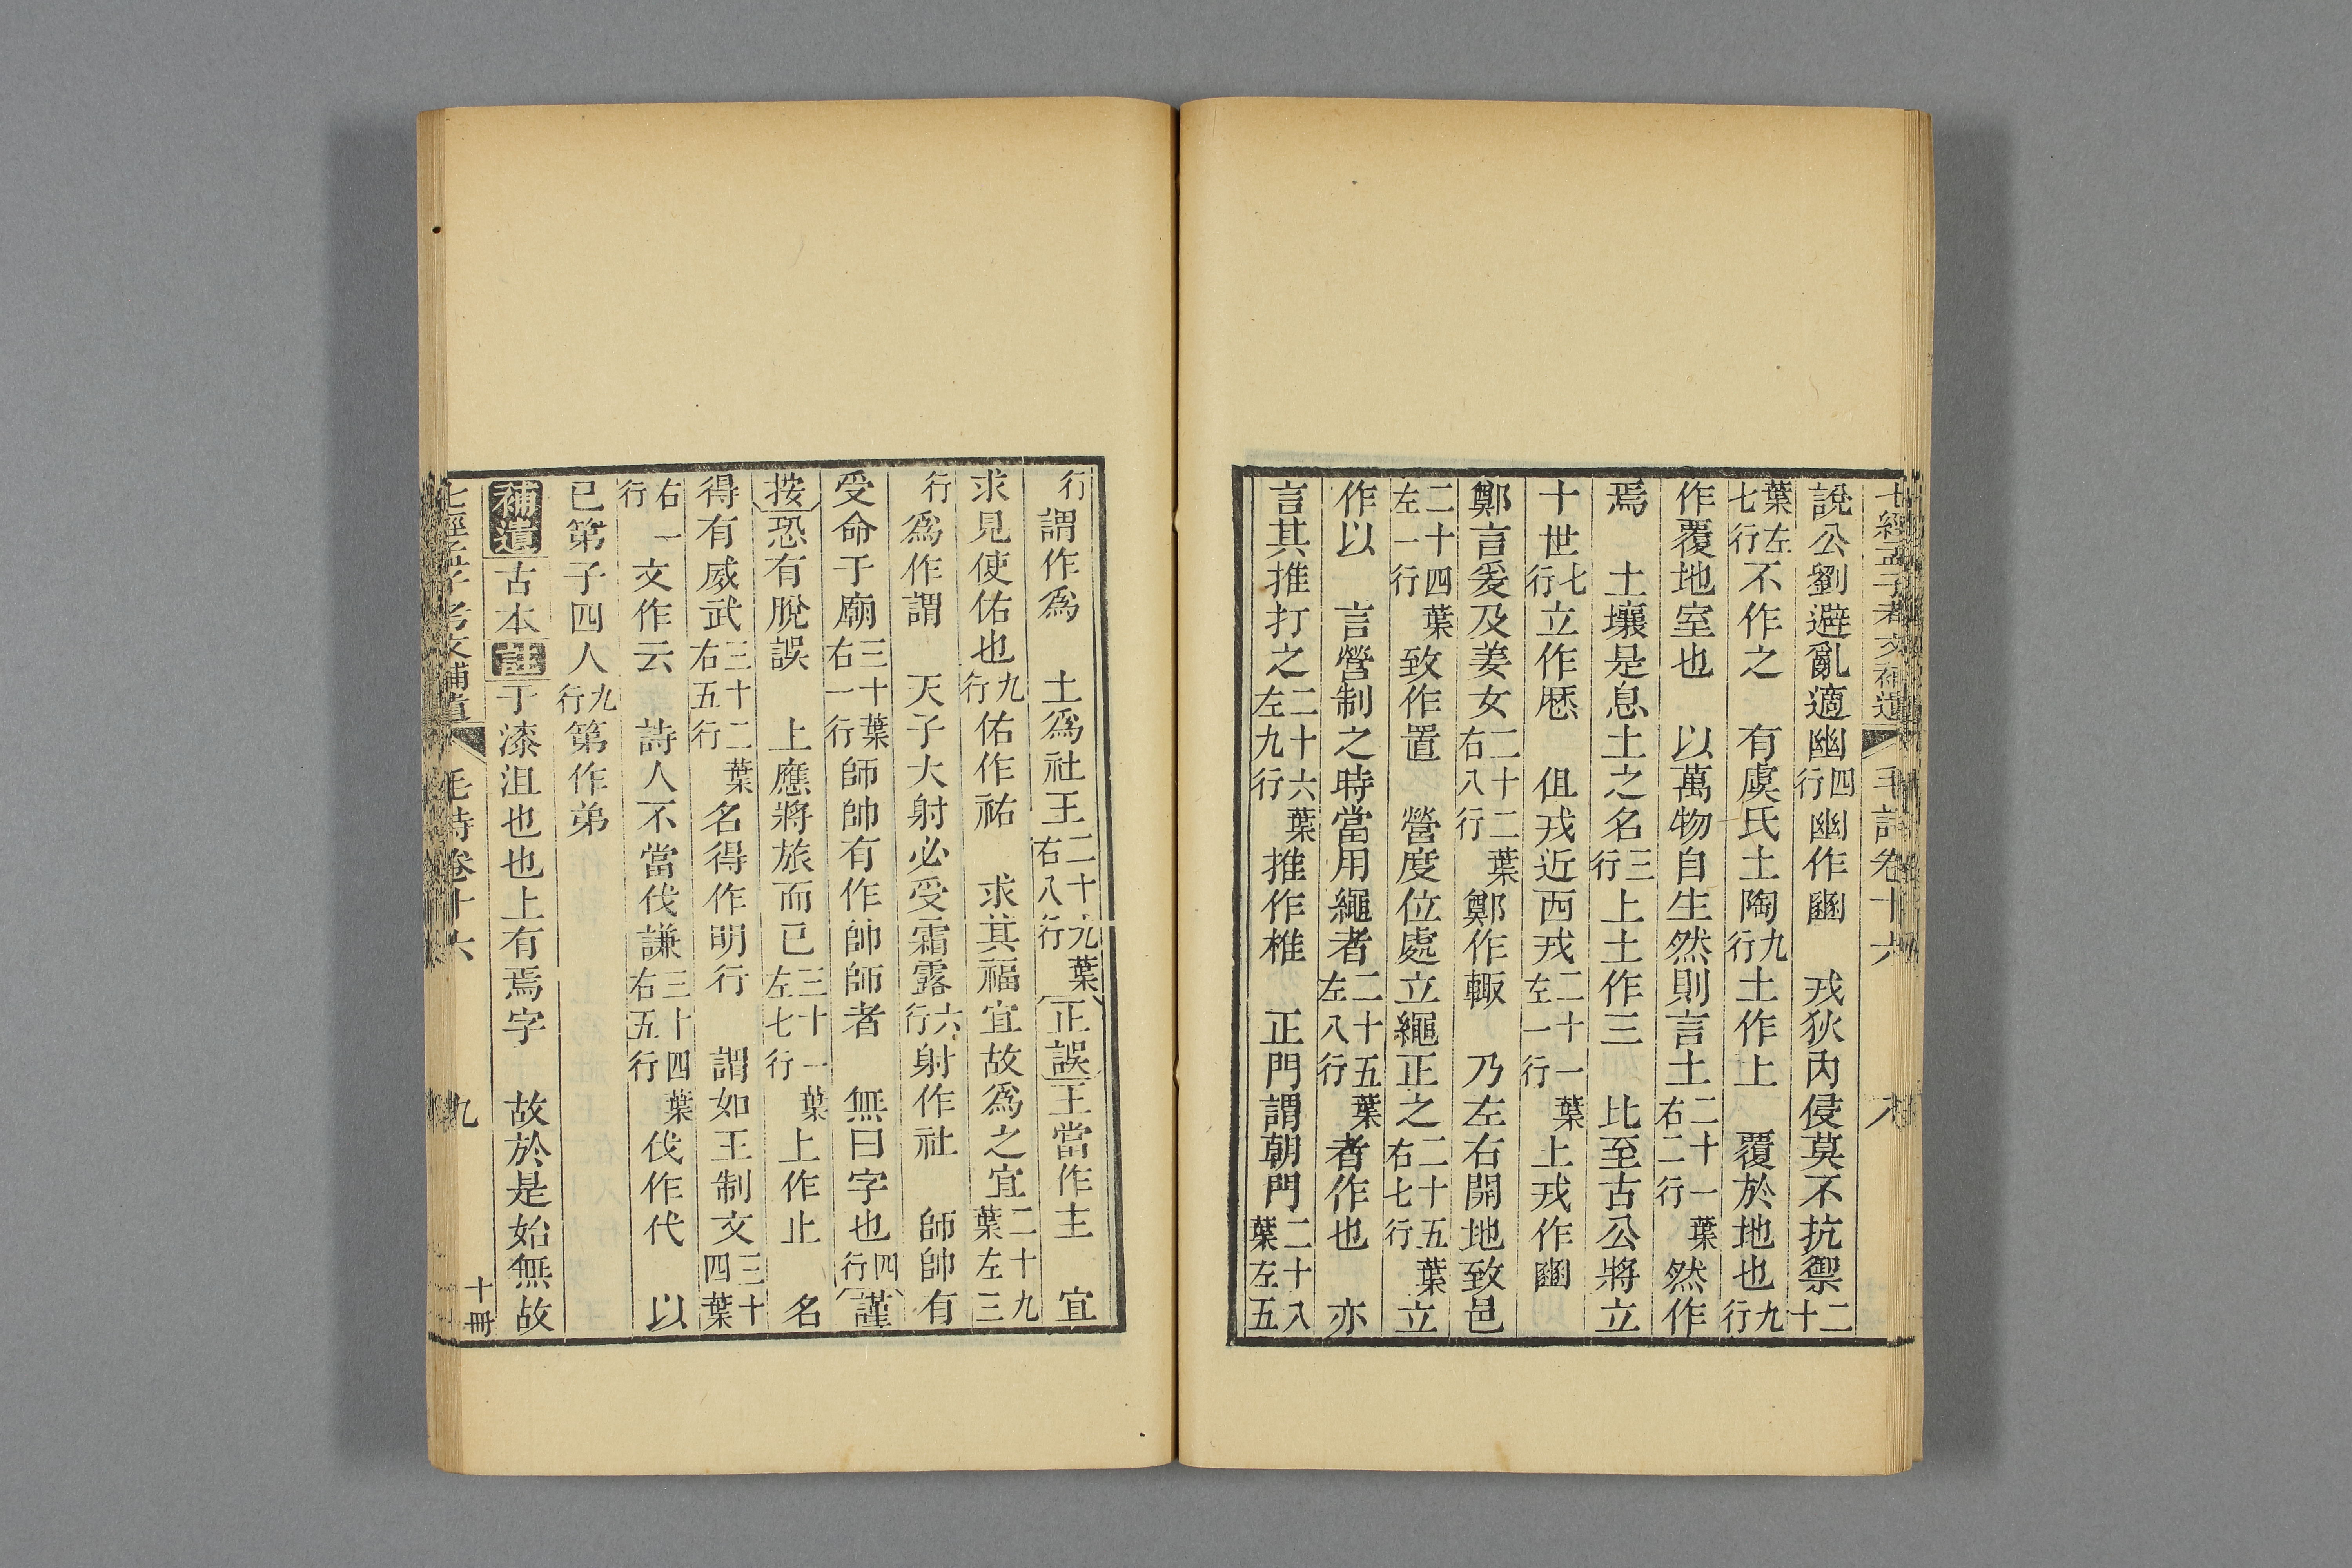 七經孟子考文補遺 毛詩卷十六 八
說公劉避亂適幽四行幽作豳 戎狄內侵莫不抗禦二十
葉左七行不作之 有虞氏土陶九行土作上 覆於地也九行
作覆地室也 以萬物自生然則言土二十一葉右二行然作
焉 土壤是息土之名三行上土作三 比至古公將立
十世七行立作歷 伹戎近西戎二十一葉左一行上戎作豳
鄭言爰及姜女二十二葉右八行鄭作輙 乃左右開地致邑
二十四葉左一行致作置 營度位處立繩正之二十五葉右七行立
作以 言營制之時當用繩者二十五葉左八行者作也 亦
言其推打之二十六葉左九行推作椎 正門謂朝門二十八葉左五
行謂作爲 土爲社王二十九葉右八行正誤王當作主 宜
求見使佑也九行佑作祐 求其福宜故爲之宜二十九葉左三
行爲作謂 天子大射必受霜露六行射作社 師帥有
受命于廟三十葉右一行師帥有作帥師者 無曰字也四行謹
按恐有脫誤 上應將旅而已三十一葉左七行上作止 名
得有威武三十二葉右五行名得作明行 謂如王制文三十四葉
右一行文作云 詩人不當伐謙三十四葉右五行伐作代 以
已第子四人九行第作弟
補遺古本註于漆沮也也上有焉字 故於是始無故
七經孟子考文補遺 毛詩卷十六 九 十冊